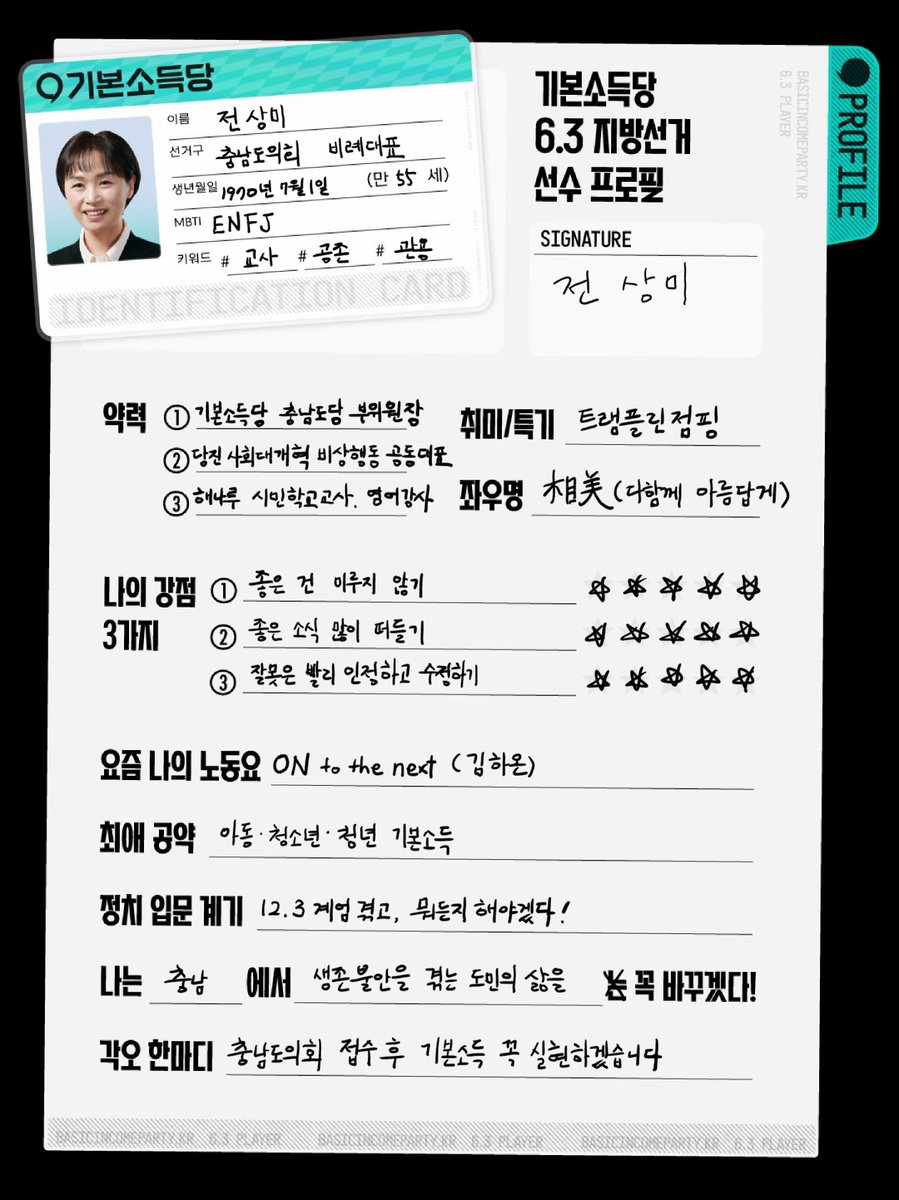 기본소득당
이름 전상미
선거구 충남도의회 비례대표
생년월일 1970년 7월 1일 (만 55 세)
MBTI ENFJ
키워드 # 교사 # 공존 # 관용
IDENTIFICATION CARD
기본소득당
6.3 지방선거
선수 프로필
BASICINCOMEPARTY.KR
6.3 PLAYER
PROFILE
SIGNATURE
전상미
약력 ① 기본소득당 충남도당 부위원장
② 당진 사회대개혁 비상행동 공동대표
③ 해나루 시민학교교사. 영어강사
취미/특기 트램플린점핑
좌우명 相美 (다함께 아름답게)
나의 강점
3가지
① 좋은 건 미루지 않기
② 좋은 소식 많이 떠들기
③ 잘못은 빨리 인정하고 수정하기
요즘 나의 노동요 ON to the next (김하온)
최애 공약 아동·청소년·청년 기본소득
정치 입문 계기 12.3 계엄 겪고, 뭐든지 해야겠다!
나는 충남 에서 생존불안을 겪는 도민의 삶을 꼭 바꾸겠다!
각오 한마디 충남도의회 접수 후 기본소득 꼭 실현하겠습니다
BASICINCOMEPARTY.KR 6.3 PLAYER BASICINCOMEPARTY.KR 6.3 PLAYER BASICINCOMEPARTY.KR 6.3 PLAYER